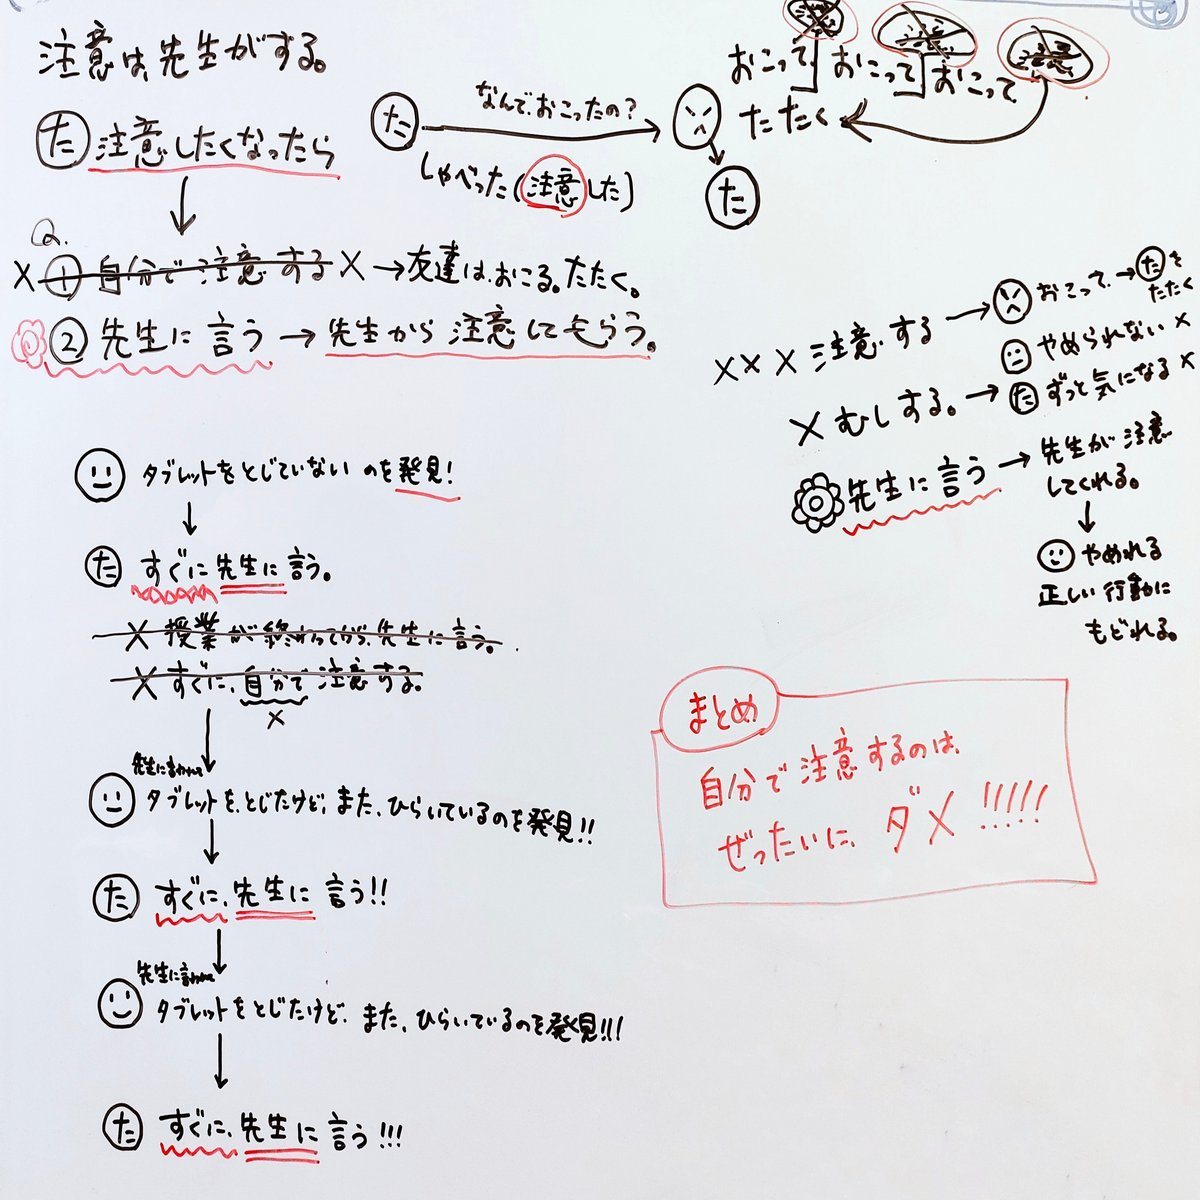 注意は、先生がする。
た 注意したくなったら
Q.
× ① 自分で注意する × → 友達は、おこる。たたく。
② 先生に言う → 先生から注意してもらう。
た なんで、おこったの?
しゃべった(注意した)
おこって、 おこって おこって
たたく
た
××× 注意する → おこって、→ たを
たたく
やめられない ×
× むしする。→ た ずっと気になる ×
先生に言う → 先生が注意
してくれる。
やめれる
正しい行動に
もどれる。
タブレットをとじていないのを発見!
た すぐに先生に言う。
× 授業が終わってから、先生に言う。
× すぐに、自分で注意する。
×
先生に言われて
タブレットを、とじたけど、また、ひらいているのを発見!!
た すぐに、先生に言う!!
先生に言われて
タブレットをとじたけど、また、ひらいているのを発見!!!
た すぐに、先生に言う!!!
まとめ
自分で注意するのは、
ぜったいに、ダメ!!!!!